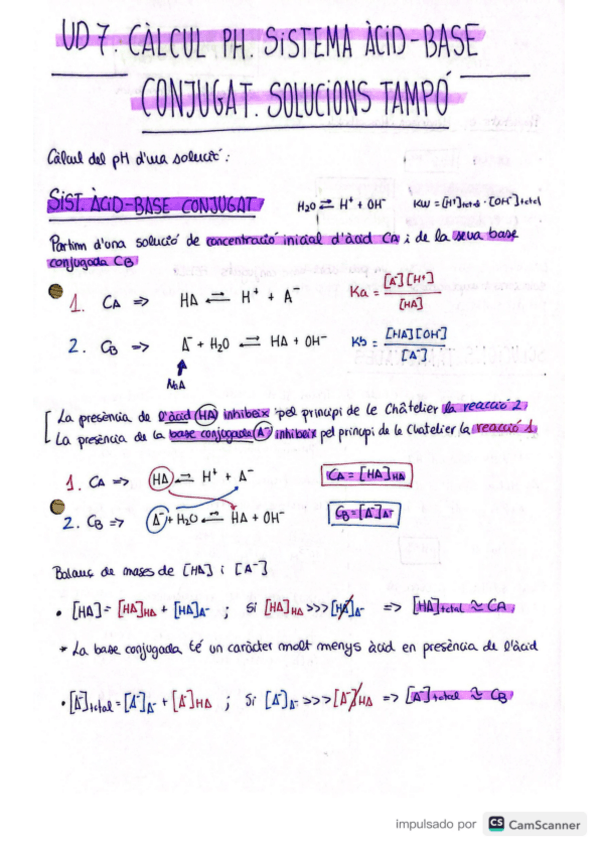 UD 7. CÀLCUL PH. SISTEMA ÀCID-BASE
CONJUGAT. SOLUCIONS TAMPÓ
Càlcul del pH d'una solució:
SIST. ÀCID-BASE CONJUGAT
H₂O ⇌ H⁺ + OH⁻ Kw = [H⁺]total · [OH⁻]total
Partim d'una solució de concentració inicial d'àcid CA i de la seva base
conjugada CB
1. CA => HA ⇌ H⁺ + A⁻ Ka = [A⁻][H⁺] / [HA]
2. CB => A⁻ + H₂O ⇌ HA + OH⁻ Kb = [HA][OH⁻] / [A⁻]
NaA
La presència de l'àcid (HA) inhibeix pel principi de Le Châtelier la reacció 2
La presència de la base conjugada (A⁻) inhibeix pel principi de le Chatelier la reacció 1
1. CA => HA ⇌ H⁺ + A⁻ CA = [HA]HA
2. CB => A⁻ + H₂O ⇌ HA + OH⁻ CB = [A⁻]A⁻
Balanç de masses de [HA] i [A⁻]
• [HA] = [HA]HA + [HA]A⁻ ; Si [HA]HA >>> [HA]A⁻ => [HA]total ≃ CA
* La base conjugada té un caràcter molt menys àcid en presència de l'àcid
• [A⁻]total = [A⁻]A⁻ + [A⁻]HA ; Si [A⁻]A⁻ >>> [A⁻]HA => [A⁻]total ≃ CB
impulsado por CS CamScanner